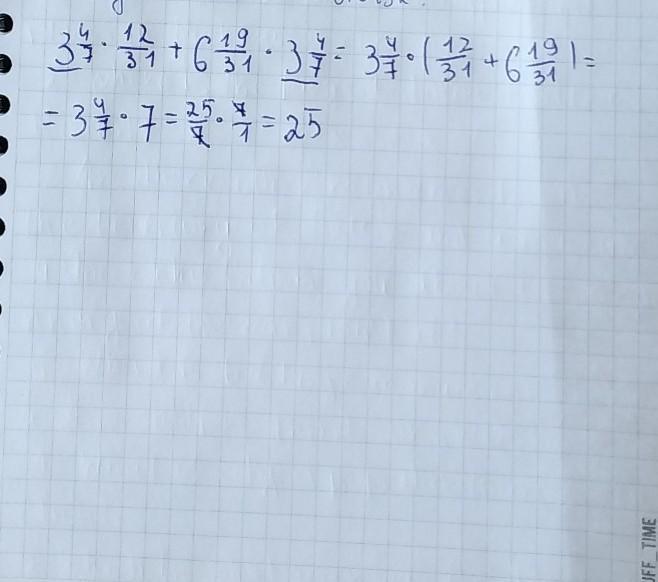 3 4/7 · 12/31 + 6 19/31 · 3 4/7 = 3 4/7 · ( 12/31 + 6 19/31 ) =
= 3 4/7 · 7 = 25/7 · 7/1 = 25
IFF_TIME